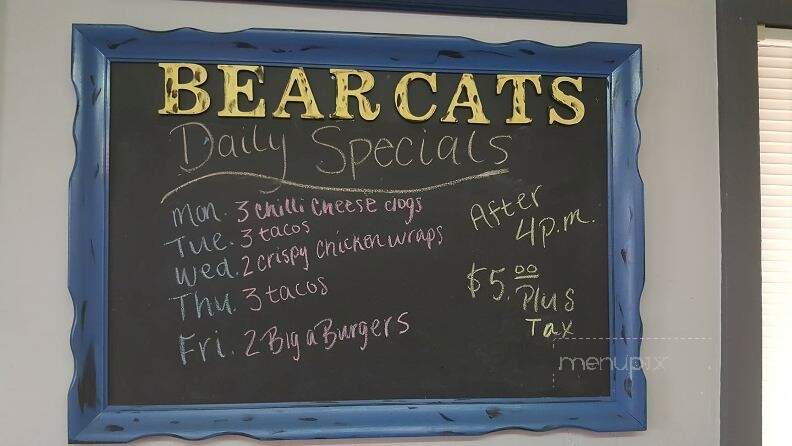 BEARCATS
Daily Specials
Mon. 3 chilli cheese dogs
Tue. 3 tacos
Wed. 2 crispy chicken wraps
Thu. 3 tacos
Fri. 2 Big a Burgers
After
4 p.m.
$5.00
Plus
Tax
menupix